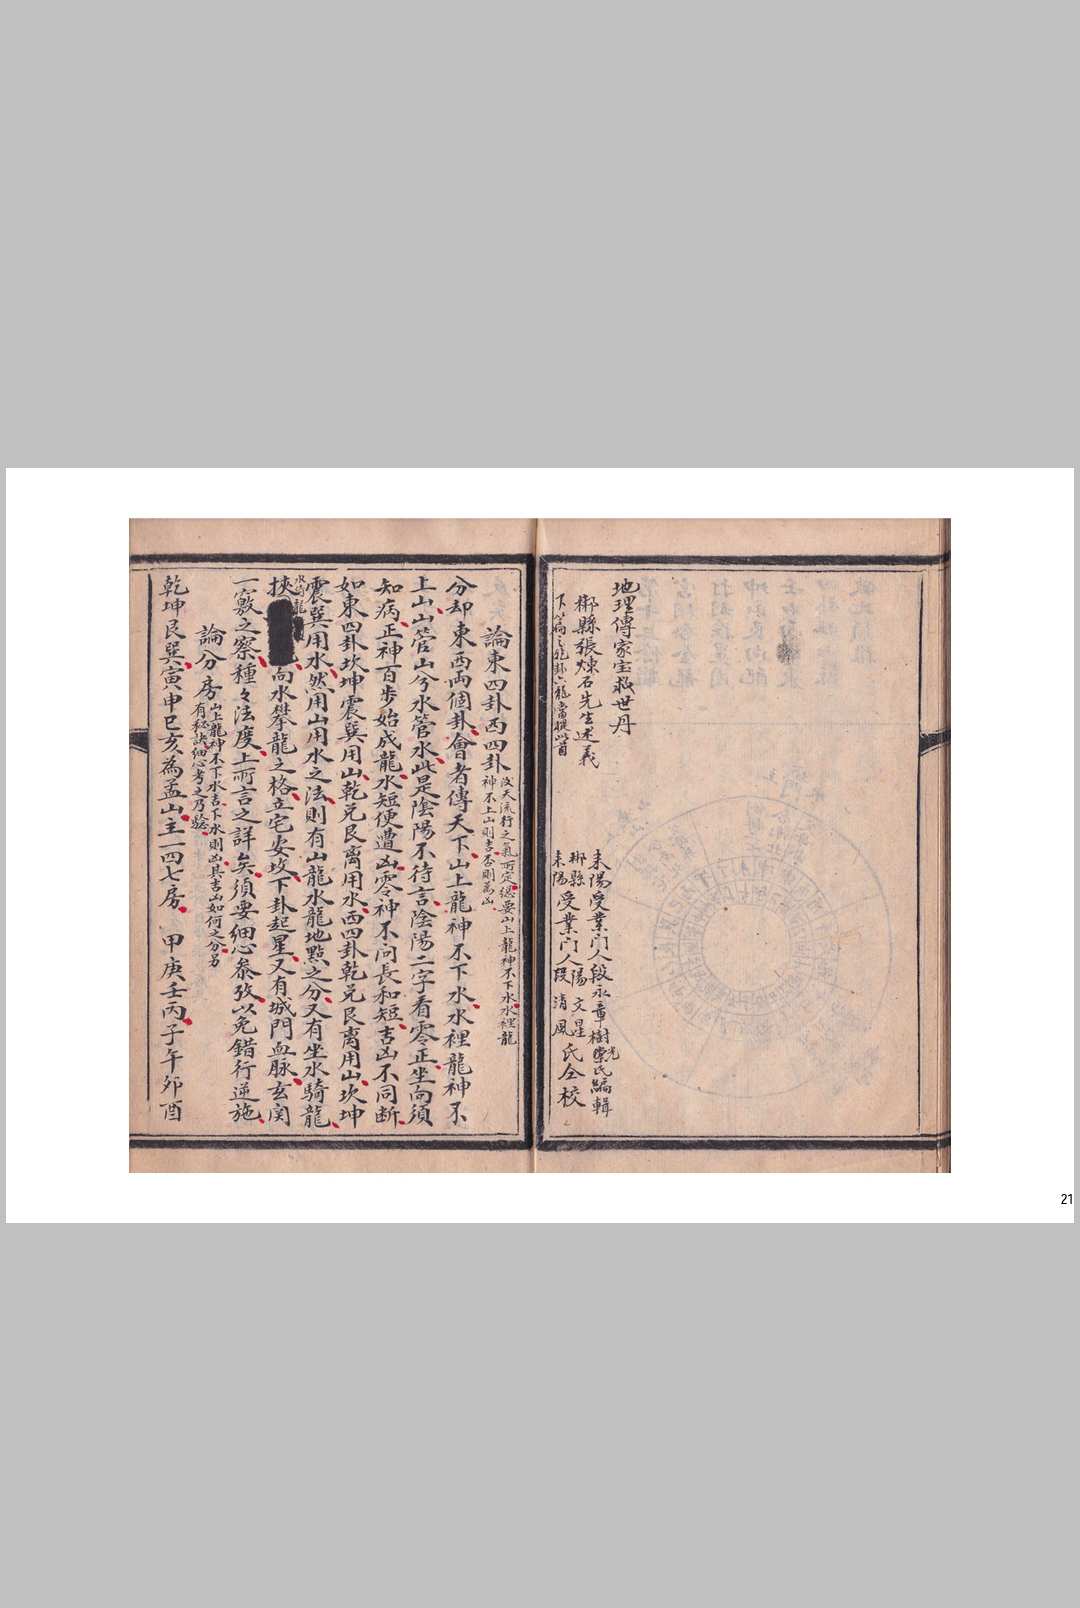 地理傳家宝救世丹
郴縣張煉石先生述義
耒陽受業門人段永章樹棠氏編輯
光
郴縣
耒陽
受業門人
陽文星
段清風
氏仝校
論東四卦西四卦
改天流行之氣所定總要山上龍神不下水水裡龍
神不上山則吉否則為凶
分却東西両個卦會者傳天下山上龍神不下水水裡龍神不
上山山管山兮水管水此是陰陽不待言陰陽二字看零正坐向須
知病正神百步始成龍水短便遭凶零神不问長和短吉凶不同断
如東四卦坎坤震巽用山乾兑艮离用水西四卦乾兑艮离用山坎坤
震巽用水然用山用水之法則有山龍水龍地點之分又有坐水騎龍
水
龍
挾
向水攀龍之格立宅安坟下卦起星又有城門血脉玄関
一竅之察種々法度上所言之詳矣須要细心叅攷以免錯行逆施
論分房
山上龍神不下水吉下水則凶其吉山如何之分另
有秘訣细心考之乃騐
乾坤艮巽寅申巳亥為孟山主一四七房 甲庚壬丙子午夘酉
21